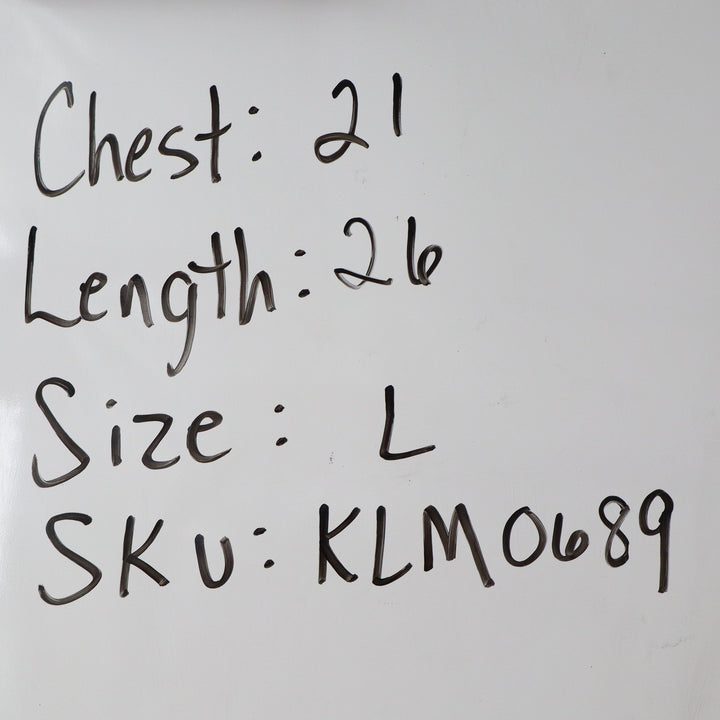 Chest: 21
Length: 26
Size: L
SKU: KLM0689